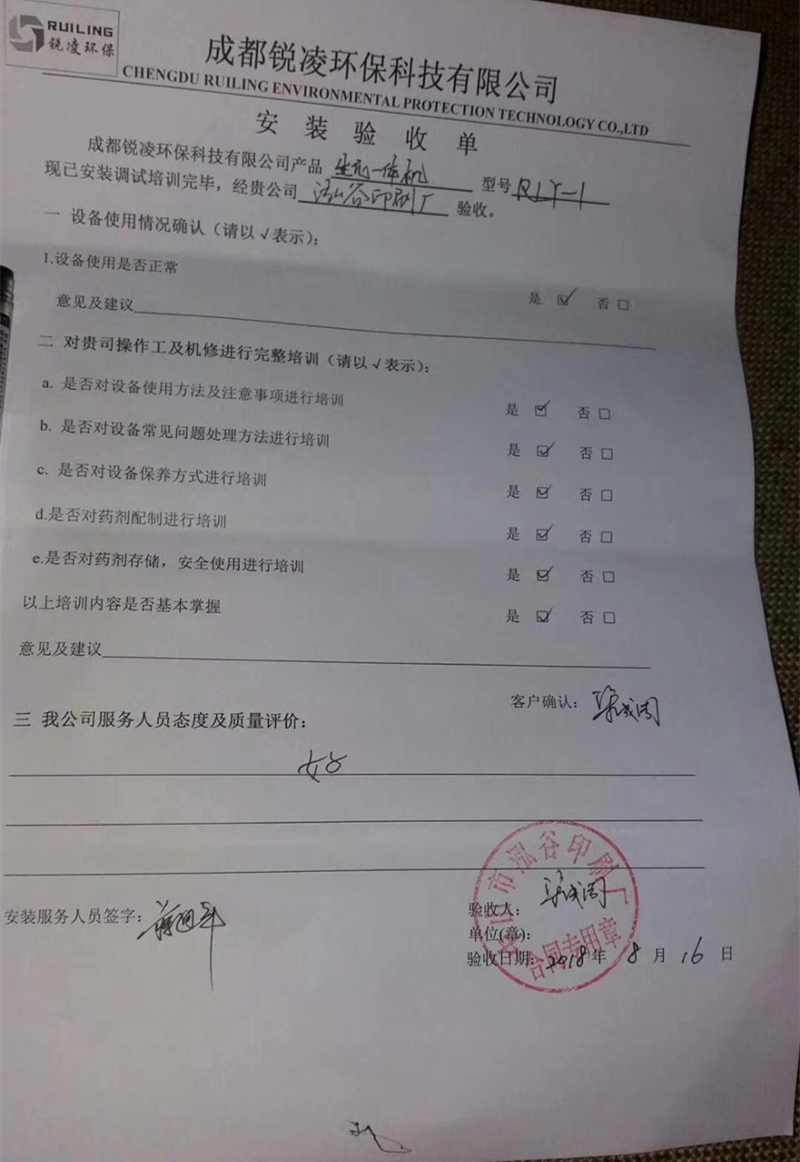 RUILING
锐凌环保
成都锐凌环保科技有限公司
CHENGDU RUILING ENVIRONMENTAL PROTECTION TECHNOLOGY CO.,LTD
安装验收单
成都锐凌环保科技有限公司产品 生化一体机 型号 RLY-1
现已安装调试培训完毕，经贵公司 泓谷印刷厂 验收。
一 设备使用情况确认（请以√表示）：
1.设备使用是否正常 是 ☑ 否 □
意见及建议
二 对贵司操作工及机修进行完整培训（请以√表示）：
a. 是否对设备使用方法及注意事项进行培训 是 ☑ 否 □
b. 是否对设备常见问题处理方法进行培训 是 ☑ 否 □
c. 是否对设备保养方式进行培训 是 ☑ 否 □
d.是否对药剂配制进行培训 是 ☑ 否 □
e.是否对药剂存储，安全使用进行培训 是 ☑ 否 □
以上培训内容是否基本掌握 是 ☑ 否 □
意见及建议
客户确认：
三 我公司服务人员态度及质量评价：
好
市泓谷印刷厂
合同专用章
安装服务人员签字：
验收人：
单位(章)：
验收日期：2018年 8 月 16 日